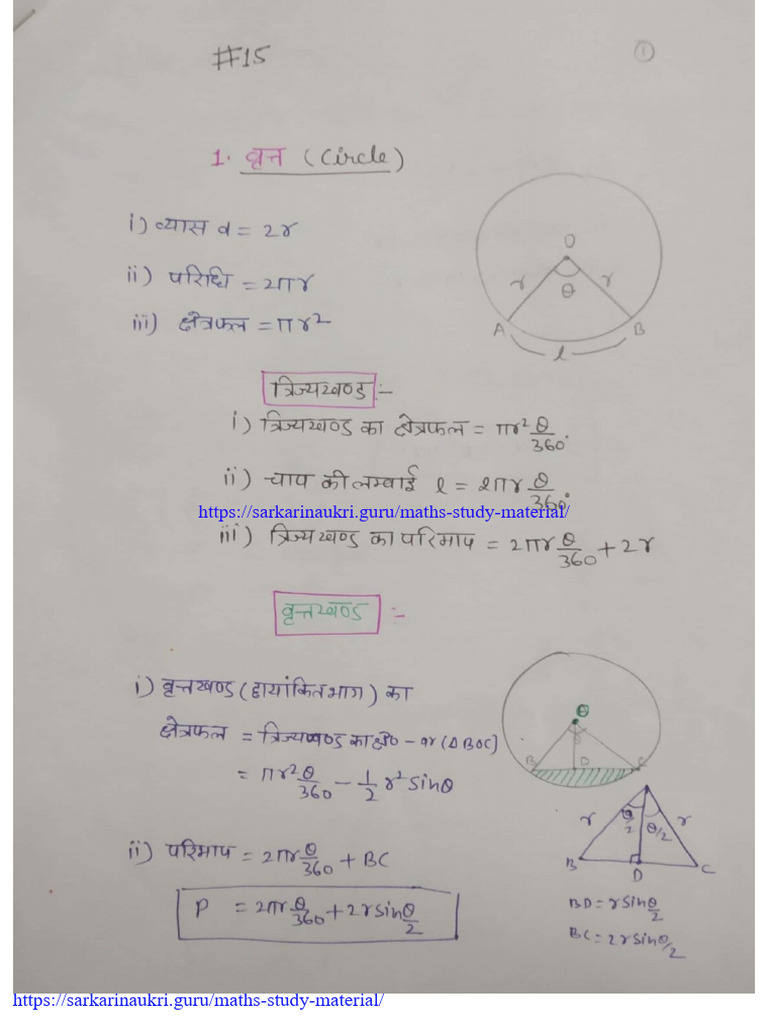 #15
1
1. वृत्त (Circle)
i) व्यास d = 2r
ii) परिधि = 2πr
iii) क्षेत्रफल = πr²
O
r r
θ
A B
l
त्रिज्यखण्ड :-
i) त्रिज्यखण्ड का क्षेत्रफल = πr² θ/360°
ii) चाप की लम्बाई l = 2πr θ/360°
https://sarkarinaukri.guru/maths-study-material/
iii) त्रिज्यखण्ड का परिमाप = 2πr θ/360 + 2r
वृत्तखण्ड :-
i) वृत्तखण्ड (छायांकित भाग) का
क्षेत्रफल = त्रिज्यखण्ड का क्षे० - ar(ΔBOC)
= πr² θ/360 - 1/2 r² sinθ
B D C
ii) परिमाप = 2πr θ/360 + BC
P = 2πr θ/360 + 2r sin θ/2
r θ/2 θ/2 r
B D C
BD = r sin θ/2
BC = 2r sin θ/2
https://sarkarinaukri.guru/maths-study-material/